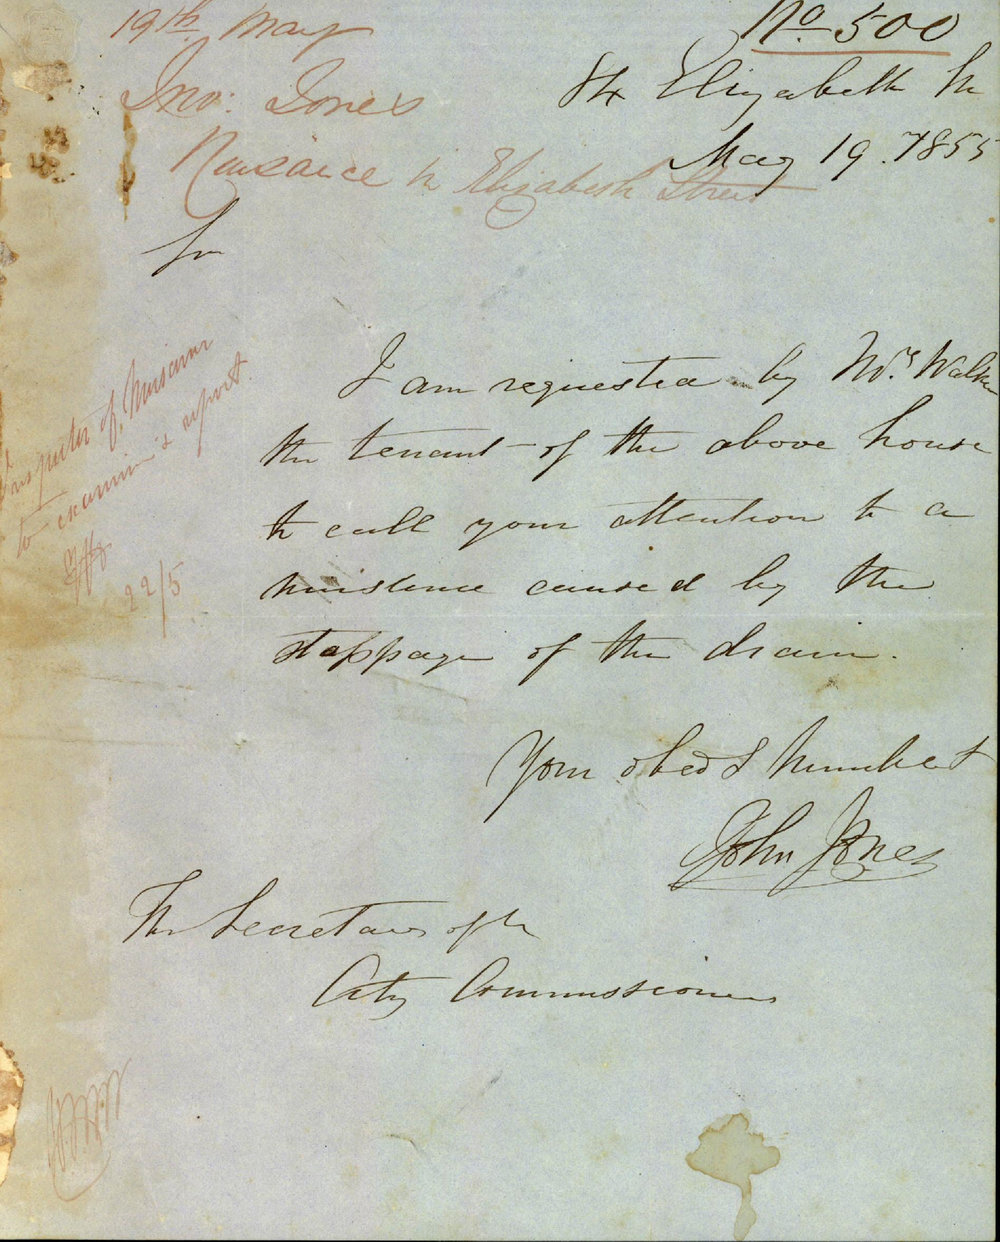 19th May
No. 500
Jno: Jones
84 Elizabeth St
May 19. 1855
Nuisance in Elizabeth Street
Sir
I am requested by Mrs Walker
the tenant of the above house
to call your attention to a
nuisance caused by the
stoppage of the drain.
Your obedt humbe St
John Jones
The Secretary of the
City Commissioners
Inspector of Nuisances
to examine & report
22/5